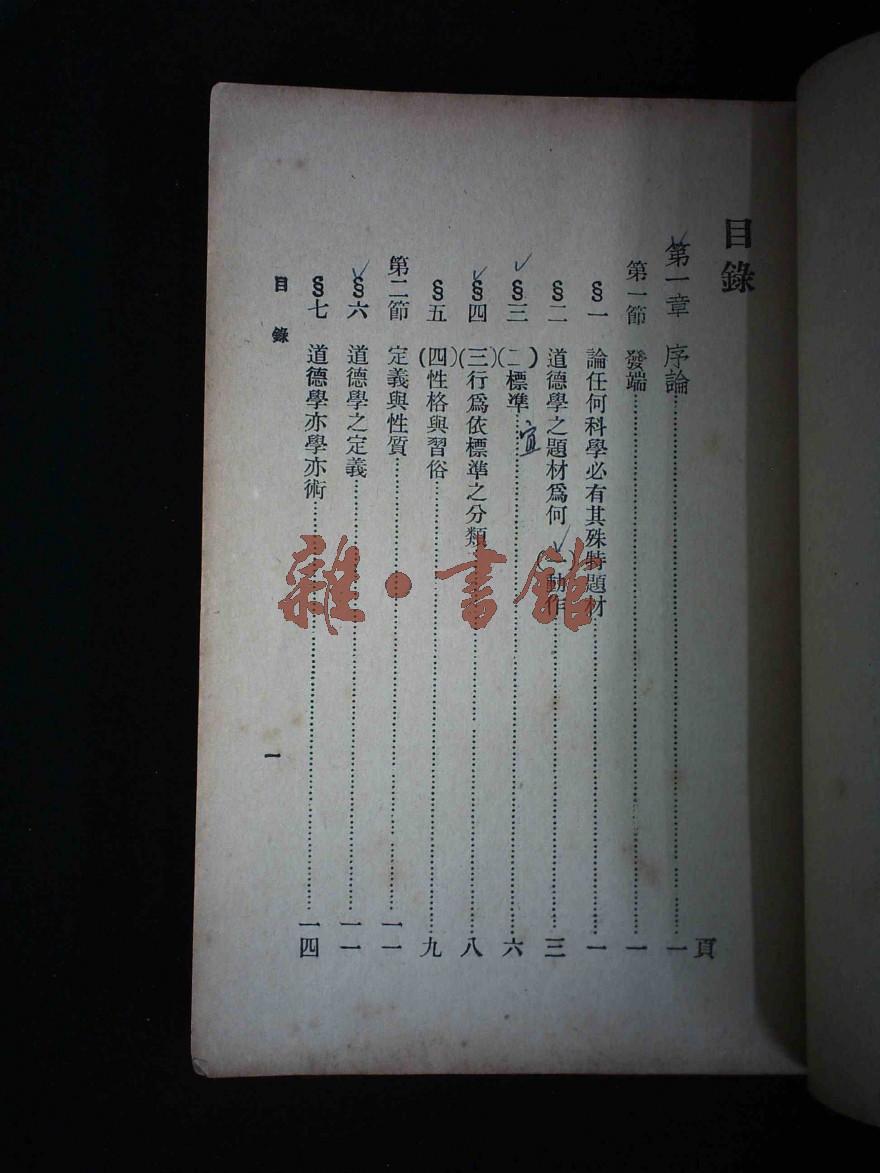 目錄
頁
第一章 序論……一
第一節 發端……一
§一 論任何科學必有其殊特題材……一
§二 道德學之題材爲何 (一)動作……三
§三 (二)標準……六
宜
§四 (三)行爲依標準之分類……八
§五 (四)性格與習俗……九
第二節 定義與性質……一一
§六 道德學之定義……一一
§七 道德學亦學亦術……一四
目錄
一
雜·書館